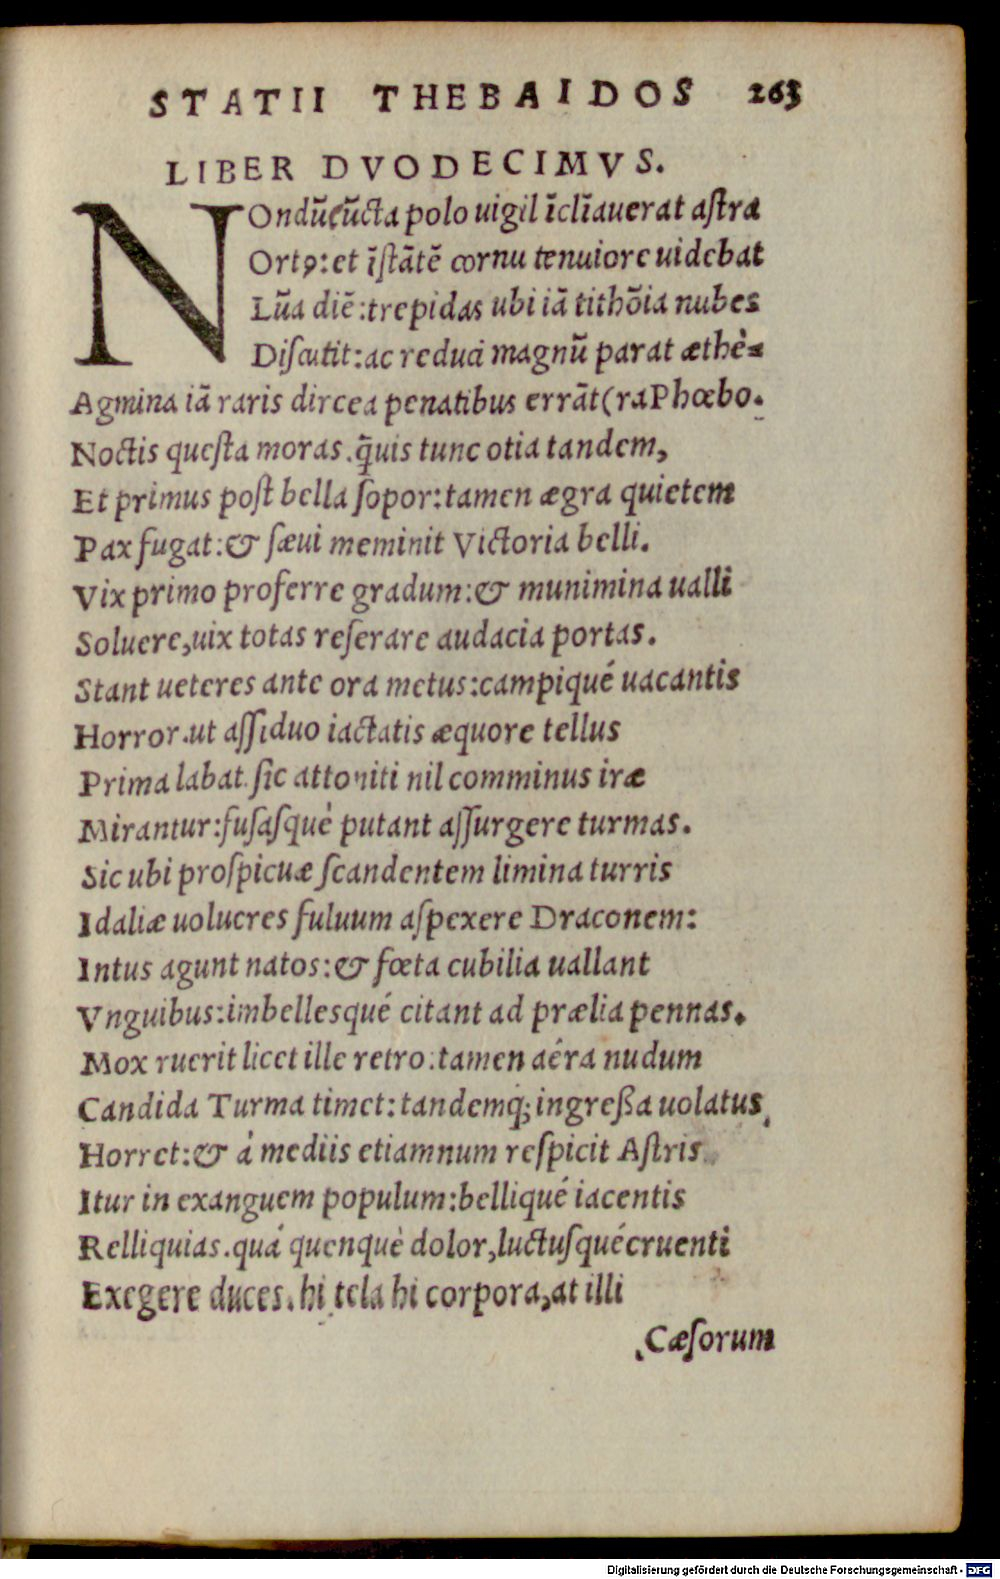 STATII THEBAIDOS 263
LIBER DVODECIMVS.
NOndũcũcta polo uigil ĩclĩauerat aſtra
Ortꝯ:et ĩſtãtẽ cornu tenuiore uidebat
Lũa diẽ:trepidas ubi iã tithõia nubes
Diſcutit:ac reduci magnũ parat æthè⸗
Agmina iã raris dircea penatibus errãt(raPhœbo.
Noctis queſta moras.q̃uis tunc otia tandem,
Et primus poſt bella ſopor:tamen ægra quietem
Pax fugat:& ſæui meminit Victoria belli.
Vix primo proferre gradum:& munimina ualli
Soluere,uix totas reſerare audacia portas.
Stant ueteres ante ora metus:campiqué uacantis
Horror.ut aſſiduo iactatis æquore tellus
Prima labat.ſic attoniti nil comminus iræ
Mirantur:fuſaſquè putant aſſurgere turmas.
Sic ubi proſpicuæ ſcandentem limina turris
Idaliæ uolucres fuluum aſpexere Draconem:
Intus agunt natos:& fœta cubilia uallant
Vnguibus:imbellesqué citant ad prælia pennas.
Mox ruerit licet ille retro:tamen aéra nudum
Candida Turma timet:tandemq;ingreßa uolatus
Horret:& á mediis etiamnum reſpicit Aſtris
Itur in exanguem populum:belliqué iacentis
Relliquias.quá quenquè dolor,luctuſqué cruenti
Exegere duces.hi tela hi corpora,at illi
Cæſorum
Digitalisierung gefördert durch die Deutsche Forschungsgemeinschaft - DFG